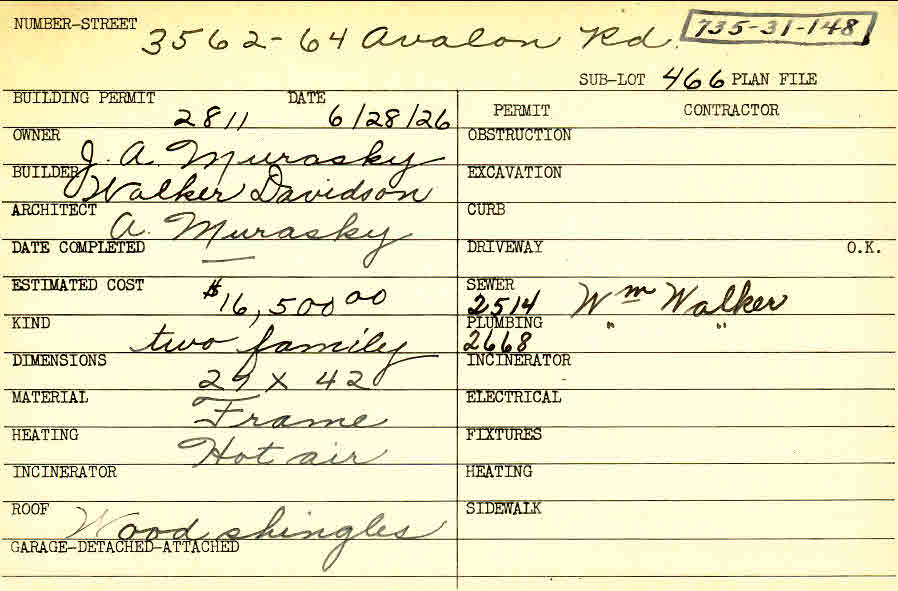 NUMBER-STREET 3562-64 Avalon Rd. 735-31-148
SUB-LOT 466 PLAN FILE
BUILDING PERMIT 2811 DATE 6/28/26
OWNER J. A. Murasky
BUILDER Walker Davidson
ARCHITECT A. Murasky
DATE COMPLETED —
ESTIMATED COST $16,500 00
KIND two family
DIMENSIONS 29 x 42
MATERIAL Frame
HEATING Hot air
INCINERATOR
ROOF Wood shingles
GARAGE-DETACHED-ATTACHED
PERMIT CONTRACTOR
OBSTRUCTION
EXCAVATION
CURB
DRIVEWAY O.K.
SEWER 2514 Wm Walker
PLUMBING 2668 " "
INCINERATOR
ELECTRICAL
FIXTURES
HEATING
SIDEWALK